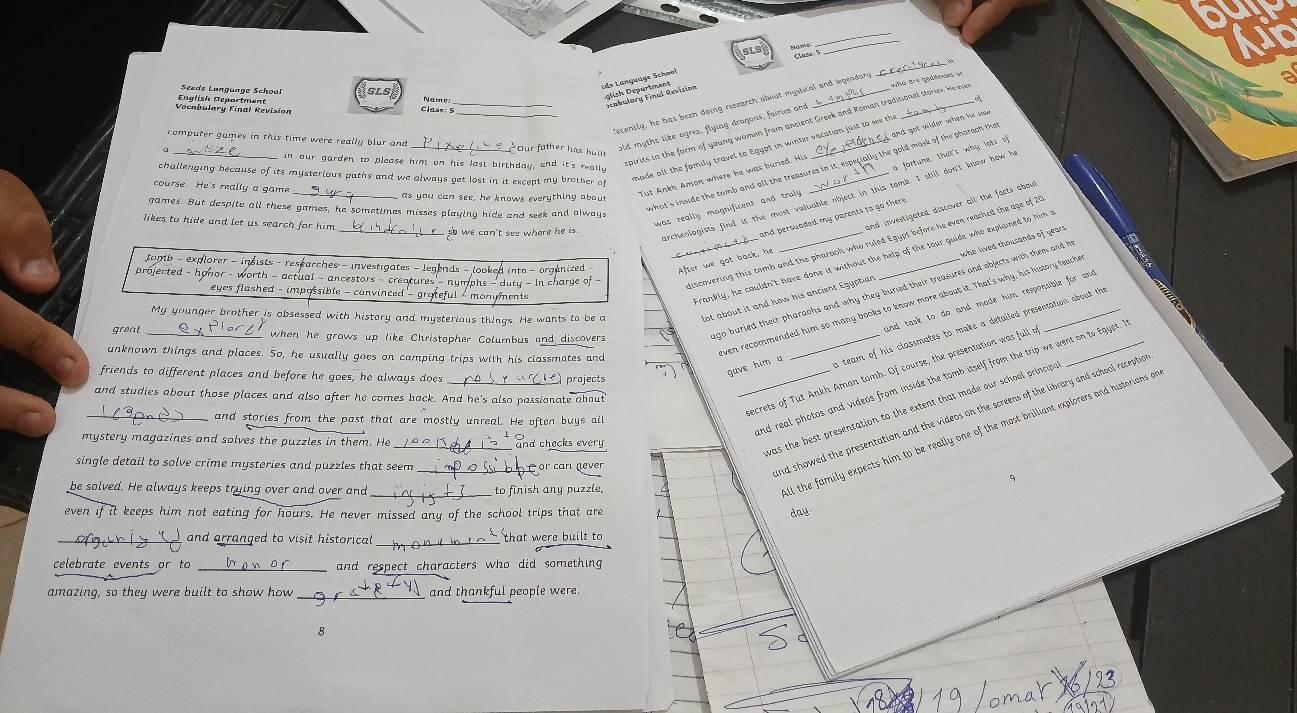 Seeds Language School
English Department
Vocabulary Final Revision
SLS
Name:
Class: 5
computer games in this time were really blur and our father has built
a maze in our garden to please him on his last birthday, and it's really
challenging because of its mysterious paths and we always get lost in it except my brother of
course. He's really a game as you can see, he knows everything about
games. But despite all these games, he sometimes misses playing hide and seek and always
likes to hide and let us search for him so we can't see where he is.
tomb - explorer - insists - researches - investigates - legends - looked into - organized -
projected - honor - worth - actual - ancestors - creatures - nymphs - duty - in charge of -
eyes flashed - impossible - convinced - grateful - monuments
My younger brother is obsessed with history and mysterious things. He wants to be a
great explorer when he grows up like Christopher Columbus and discovers
unknown things and places. So, he usually goes on camping trips with his classmates and
friends to different places and before he goes, he always does projects
and studies about those places and also after he comes back. And he's also passionate about
legends and stories from the past that are mostly unreal. He often buys all
mystery magazines and solves the puzzles in them. He looked into and checks every
single detail to solve crime mysteries and puzzles that seem or can never
be solved. He always keeps trying over and over and to finish any puzzle,
even if it keeps him not eating for hours. He never missed any of the school trips that are
and arranged to visit historical that were built to
celebrate events or to honor and respect characters who did something
amazing, so they were built to show how grateful and thankful people were.
8
eds Language School
glish Department
ocabulary Final Revision
SLS
Name:
Class: 5
Recently, he has been doing research about mystical and legendary in
old myths like ogres, flying dragons, fairies and who are goddesses or
spirits in the form of young women from ancient Greek and Roman traditional stories. He even
made all the family travel to Egypt in winter vacation just to see the of
Tut Ankh Amon where he was buried. His and got wider when he saw
what's inside the tomb and all the treasures in it, especially the gold mask of the pharaoh that
was really magnificent and truly a fortune, that's why lots of
archeologists find it the most valuable object in this tomb. I still don't know how he
and persuaded my parents to go there.
After we got back, he and investigated, discover all the facts about
discovering this tomb and the pharaoh who ruled Egypt before he even reached the age of 20.
Frankly, he couldn't have done it without the help of the tour guide who explained to him a
lot about it and how his ancient Egyptian who lived thousands of years
ago buried their pharaohs and why they buried their treasures and objects with them and he
even recommended him so many books to know more about it. That's why, his history teacher
gave him a and task to do and made him responsible for and
a team of his classmates to make a detailed presentation about the
secrets of Tut Ankh Amon tomb. Of course, the presentation was full of
and real photos and videos from inside the tomb itself from the trip we went on to Egypt. It
was the best presentation to the extent that made our school principal
and showed the presentation and the videos on the screens of the library and school reception.
All the family expects him to be really one of the most brilliant explorers and historians one
day.
9
19